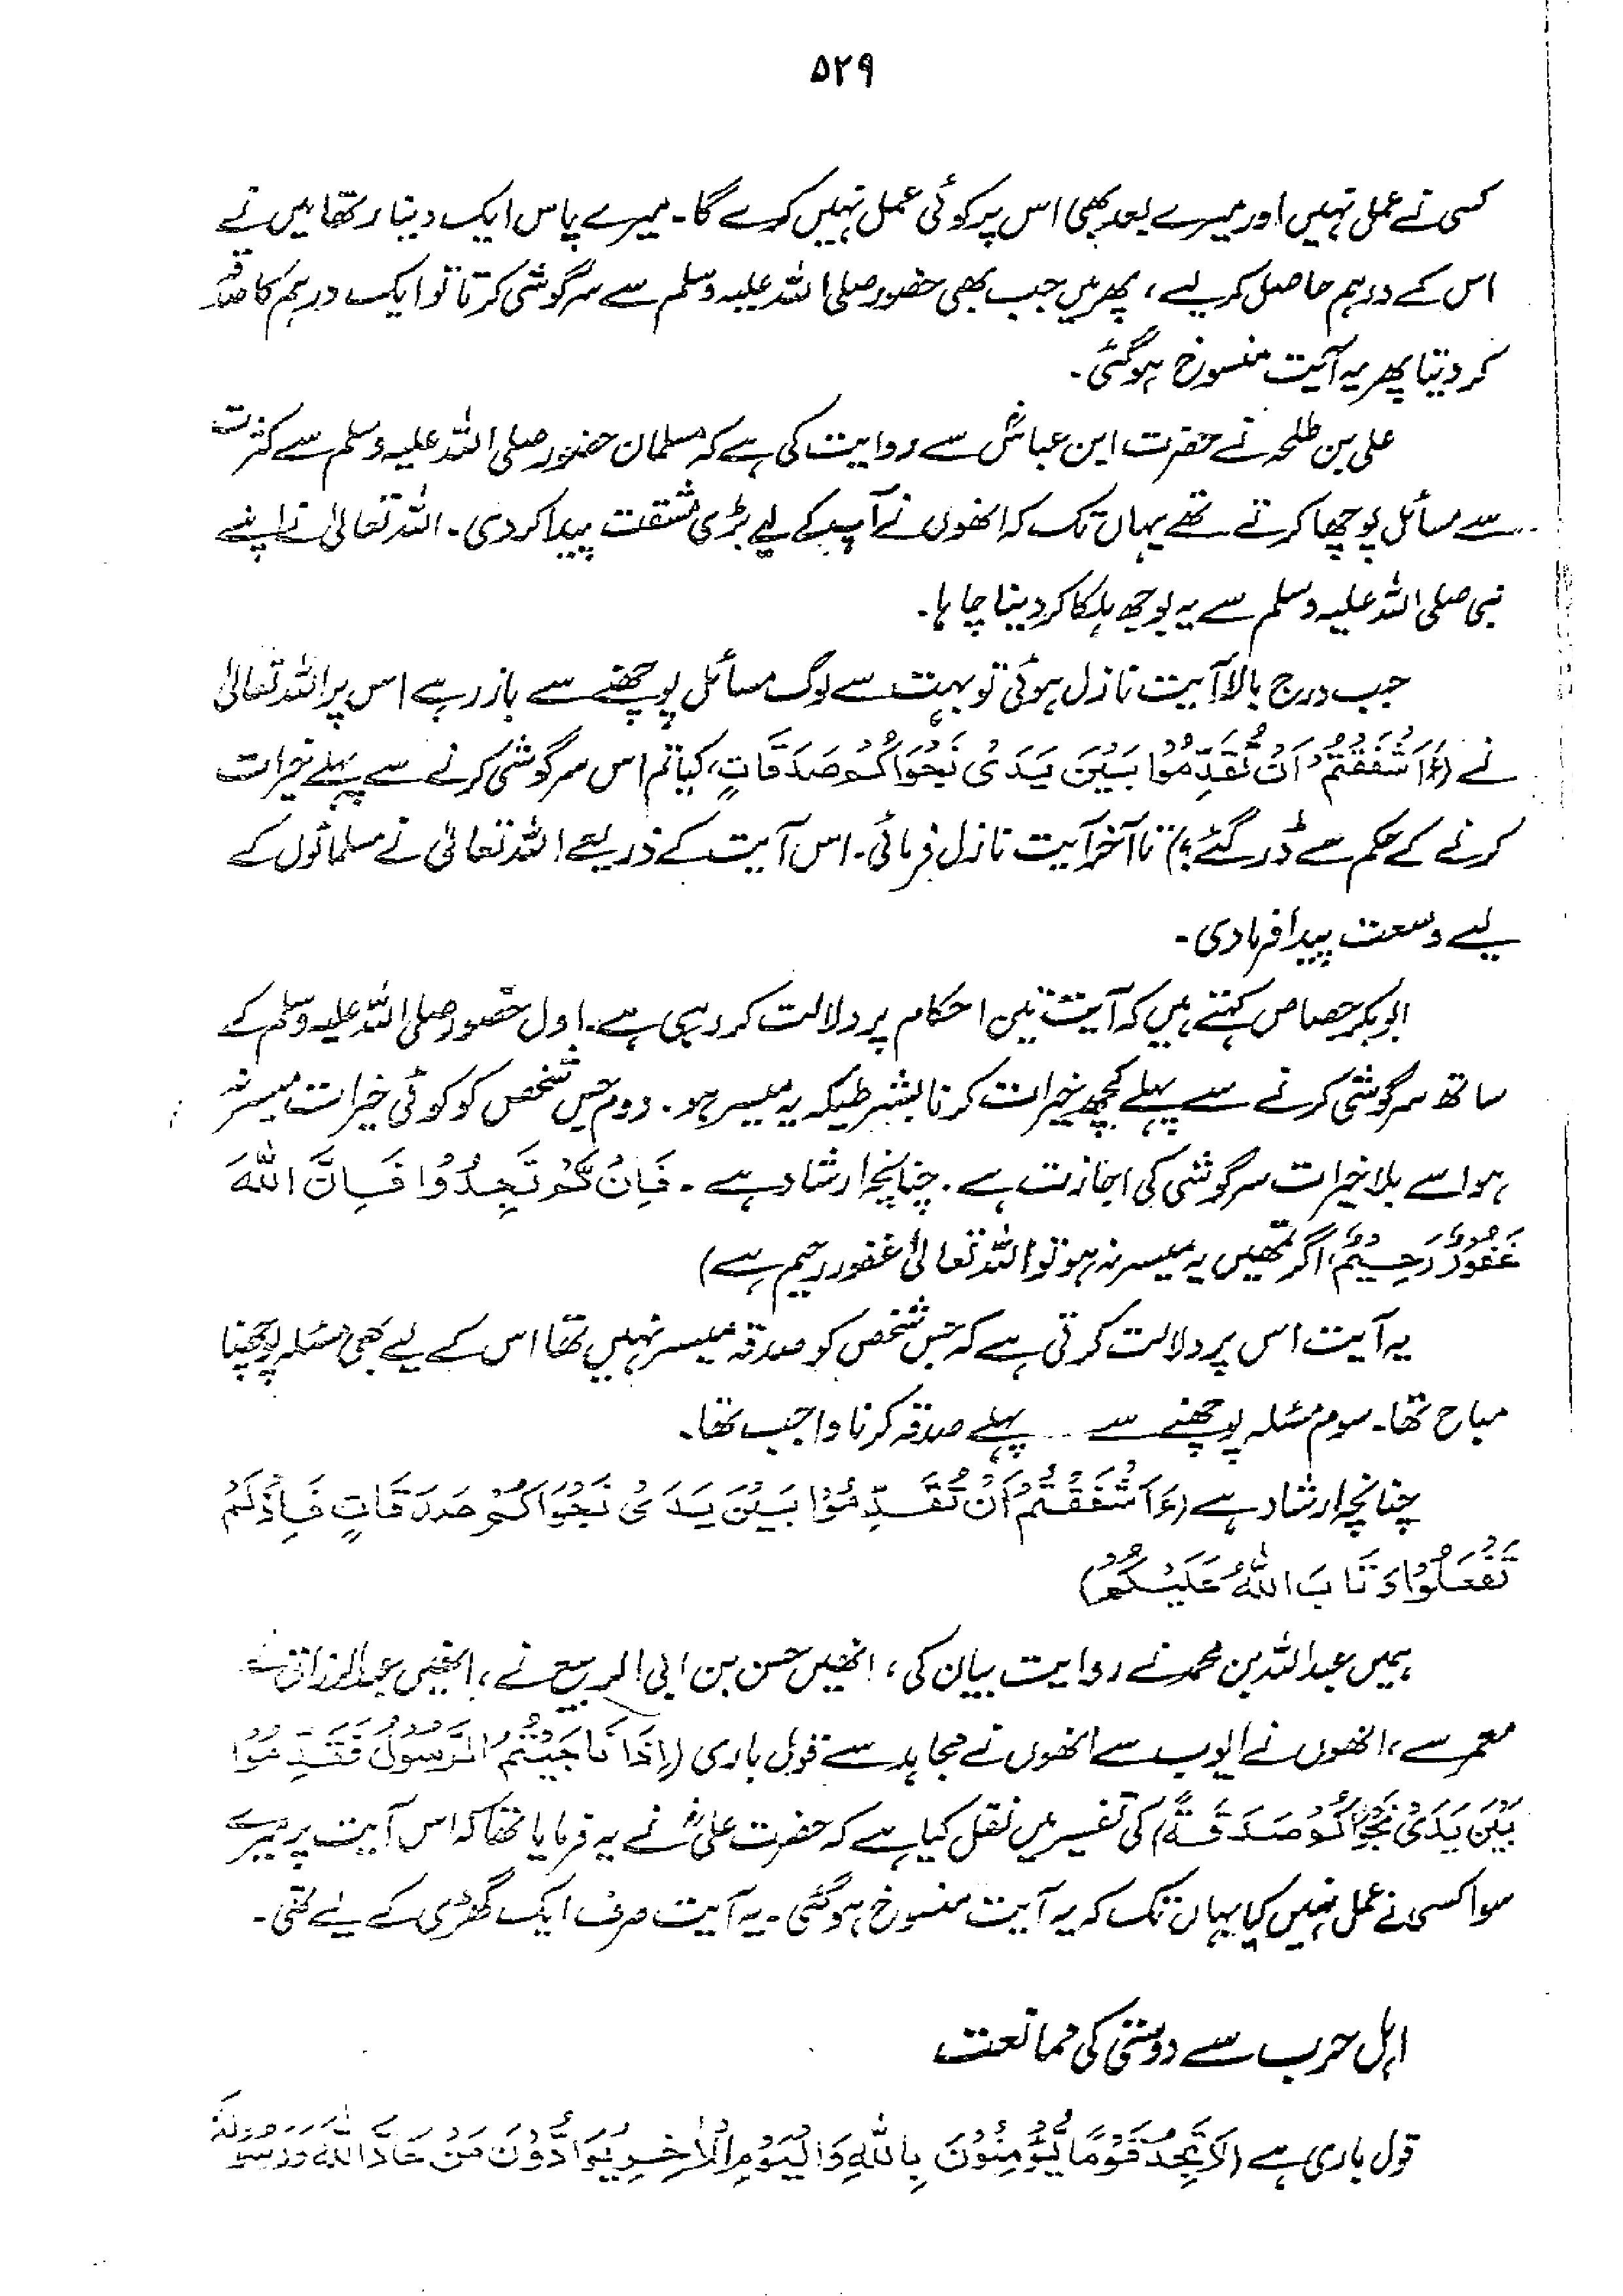 ۵۲۹
کسی نے عمل نہیں اور میرے بعد بھی اس پر کوئی عمل نہیں کرے گا۔ میرے پاس ایک دینار تھا میں نے
اس کے درہم حاصل کر لیے، پھر میں جب بھی حضور صلی اللہ علیہ وسلم سے سرگوشی کرتا تو ایک درہم کا صدقہ
کر دیتا پھر یہ آیت منسوخ ہوگئی۔
علی بن طلحہ نے حضرت ابن عباسؓ سے روایت کی ہے کہ مسلمان حضور صلی اللہ علیہ وسلم سے کثرت
سے مسائل پوچھا کرتے تھے یہاں تک کہ انھوں نے آپ کے لیے بڑی مشقت پیدا کر دی۔ اللہ تعالیٰ نے اپنے
نبی صلی اللہ علیہ وسلم سے یہ بوجھ ہلکا کر دینا چاہا۔
جب درج بالا آیت نازل ہوئی تو بہت سے لوگ مسائل پوچھنے سے باز رہے اس پر اللہ تعالیٰ
نے (ءَاَشْفَقْتُمْ اَنْ تُقَدِّمُوْا بَيْنَ يَدَىْ نَجْوَاكُمْ صَدَقَاتٍ، کیا تم اس سرگوشی کرنے سے پہلے خیرات
کرنے کے حکم سے ڈر گئے؟) تا آخر آیت نازل فرمائی۔ اس آیت کے ذریعے اللہ تعالیٰ نے مسلمانوں کے
لیے وسعت پیدا فرما دی۔
ابوبکر جصاص کہتے ہیں کہ آیت تین احکام پر دلالت کر رہی ہے۔ اول حضور صلی اللہ علیہ وسلم کے
ساتھ سرگوشی کرنے سے پہلے کچھ خیرات کرنا بشرطیکہ یہ میسر ہو۔ دوم جس شخص کو کوئی خیرات میسر نہ
ہو اسے بلا خیرات سرگوشی کی اجازت ہے۔ چنانچہ ارشاد ہے۔ فَاِنْ لَّمْ تَجِدُوْا فَاِنَّ اللّٰهَ
غَفُوْرٌ رَحِيْمٌ، اگر تمھیں یہ میسر نہ ہو تو اللہ تعالیٰ غفور رحیم ہے)
یہ آیت اس پر دلالت کرتی ہے کہ جس شخص کو صدقہ میسر نہیں تھا اس کے لیے بھی مسئلہ پوچھنا
مباح تھا۔ سوم مسئلہ پوچھنے سے پہلے صدقہ کرنا واجب تھا۔
چنانچہ ارشاد ہے (ءَاَشْفَقْتُمْ اَنْ تُقَدِّمُوْا بَيْنَ يَدَىْ نَجْوَاكُمْ صَدَقَاتٍ فَاِذْ لَمْ
تَفْعَلُوْا وَتَابَ اللّٰهُ عَلَيْكُمْ)
ہمیں عبداللہ بن محمد نے روایت بیان کی، انھیں حسن بن ابی الربیع نے، انھیں عبدالرزاق نے
معمر سے، انھوں نے ایوب سے انھوں نے مجاہد سے قول باری (اِذَا نَاجَيْتُمُ الرَّسُوْلَ فَقَدِّمُوْا
بَيْنَ يَدَىْ نَجْوَاكُمْ صَدَقَةً) کی تفسیر میں نقل کیا ہے کہ حضرت علیؓ نے یہ فرمایا تھا کہ اس آیت پر میرے
سوا کسی نے عمل نہیں کیا یہاں تک کہ یہ آیت منسوخ ہو گئی۔ یہ آیت صرف ایک گھڑی کے لیے تھی۔
اہل حرب سے دوستی کی ممانعت
قول باری ہے (لَا تَجِدُ قَوْمًا يُّؤْمِنُوْنَ بِاللّٰهِ وَالْيَوْمِ الْاٰخِرِ يُوَادُّوْنَ مَنْ حَادَّ اللّٰهَ وَرَسُوْلَهُ